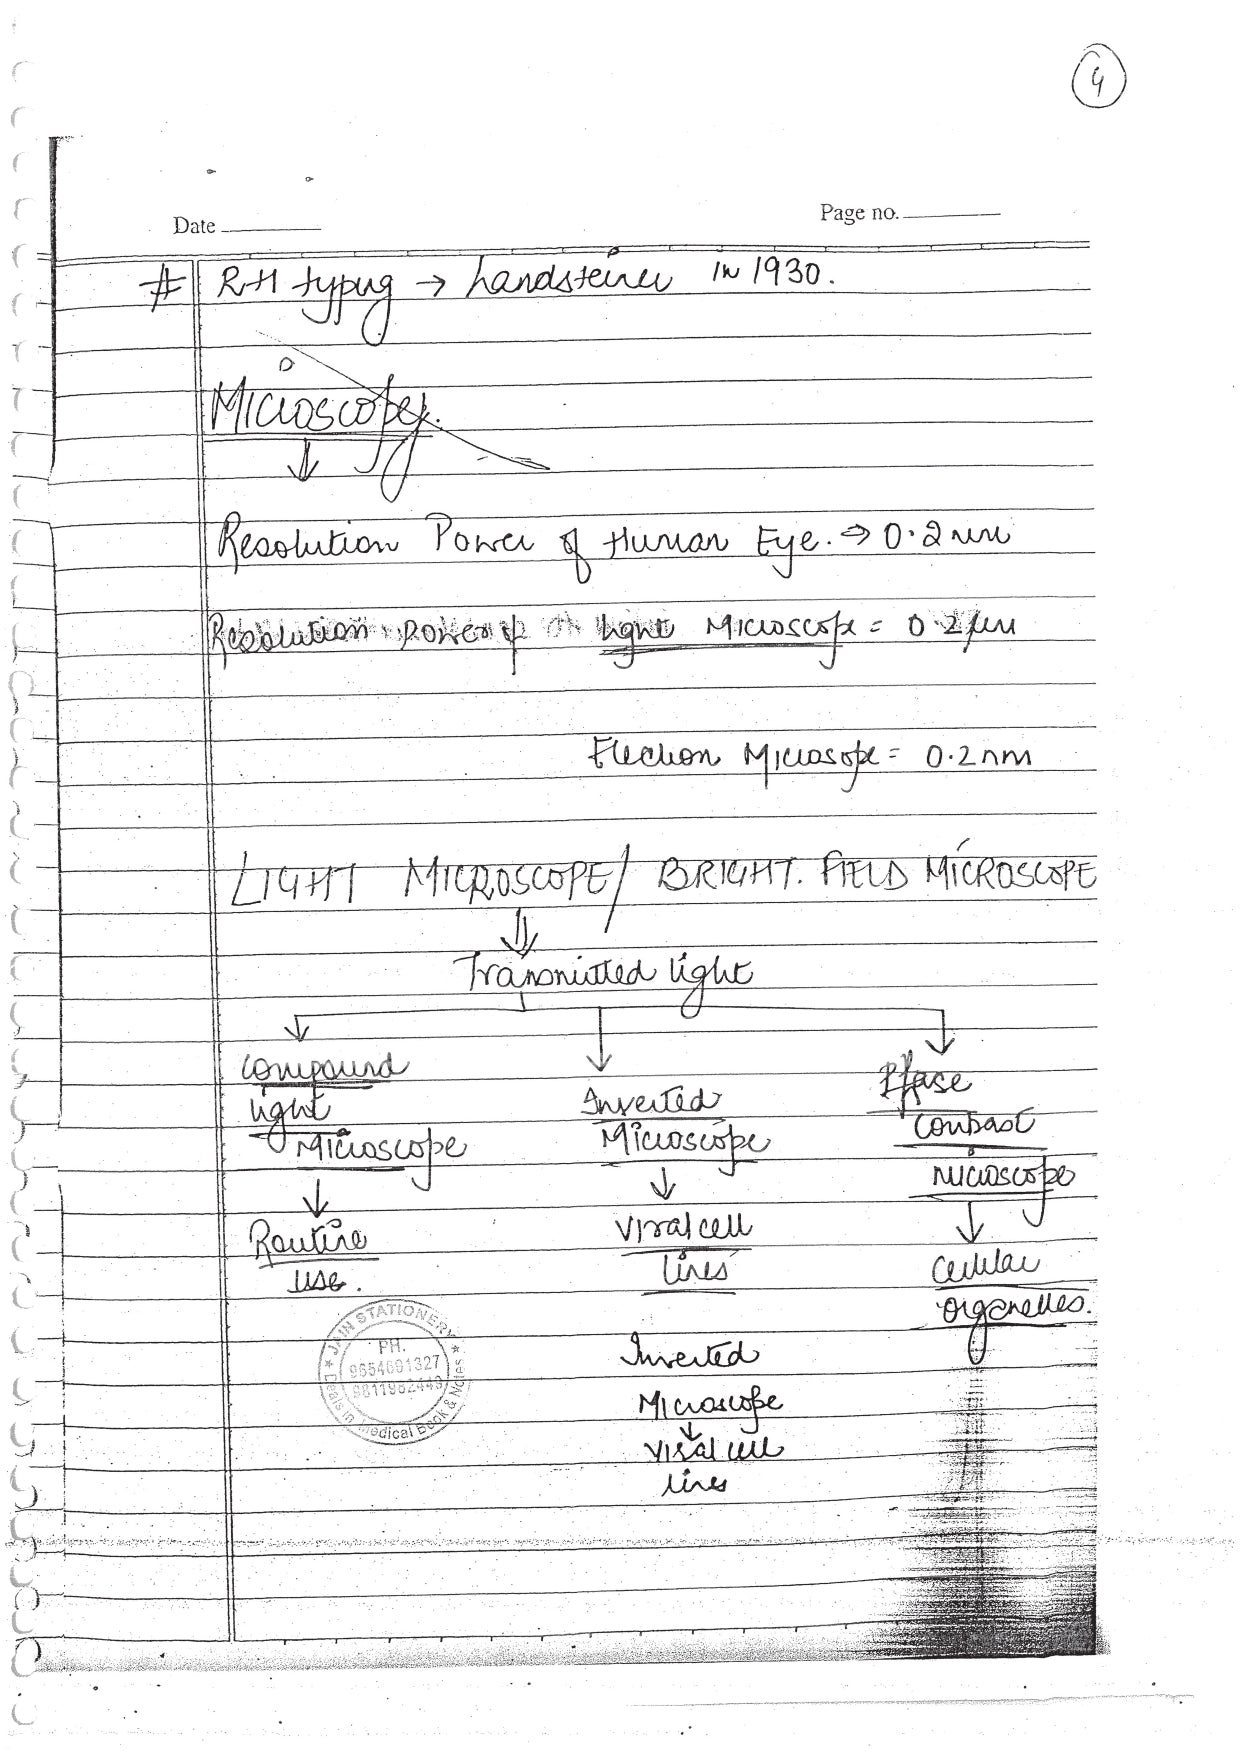 4
Date
Page no.
# RH typing → Landsteiner in 1930.
Microscopy.
↓
Resolution Power of Human Eye. ⇒ 0.2 mm
Resolution Power of light Microscope = 0.2 μm
Electron Microsope = 0.2 nm
LIGHT MICROSCOPE/ BRIGHT. FIELD MICROSCOPE
⇓
Transmitted light
↓ ↓ ↓
Compound light Microscope
↓
Routine use.
Inverted Microscope
↓
Viral cell lines
Phase contrast microscope
↓
Cellular organelles.
JAIN STATIONERY
PH.
9654691327
9811982449
Deals in Medical Book & Notes
Inverted
Microscope
↓
Viral cell
lines